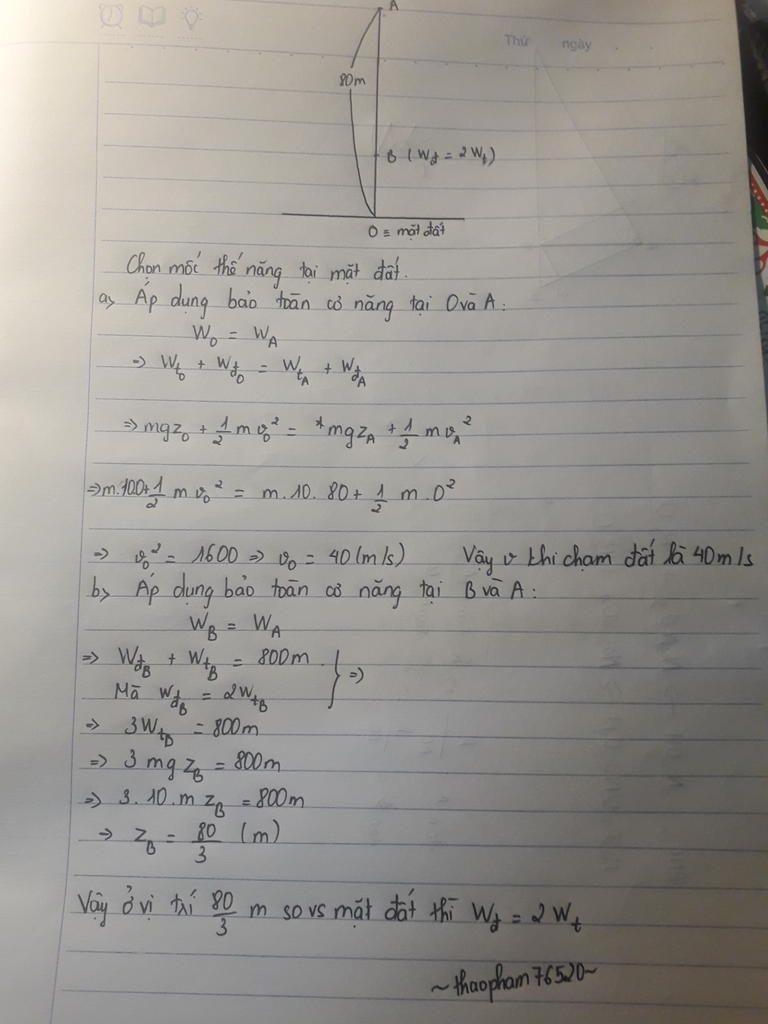 Thứ ngày
A
80m
B (Wđ = 2Wt)
O ≡ mặt đất
Chọn mốc thế năng tại mặt đất.
a> Áp dụng bảo toàn cơ năng tại O và A:
W_O = W_A
=> Wt_O + Wđ_O = Wt_A + Wđ_A
=> mgz_O + 1/2 m v_O² = mgz_A + 1/2 m v_A²
=> m.10.0 + 1/2 m v_O² = m.10.80 + 1/2 m.0²
=> v_O² = 1600 => v_O = 40 (m/s) Vậy v khi chạm đất là 40m/s
b> Áp dụng bảo toàn cơ năng tại B và A:
W_B = W_A
=> Wđ_B + Wt_B = 800m
Mà Wđ_B = 2Wt_B } =>
=> 3Wt_B = 800m
=> 3mgz_B = 800m
=> 3.10.m z_B = 800m
=> z_B = 80/3 (m)
Vậy ở vị trí 80/3 m so vs mặt đất thì Wđ = 2Wt
~thaopham76520~